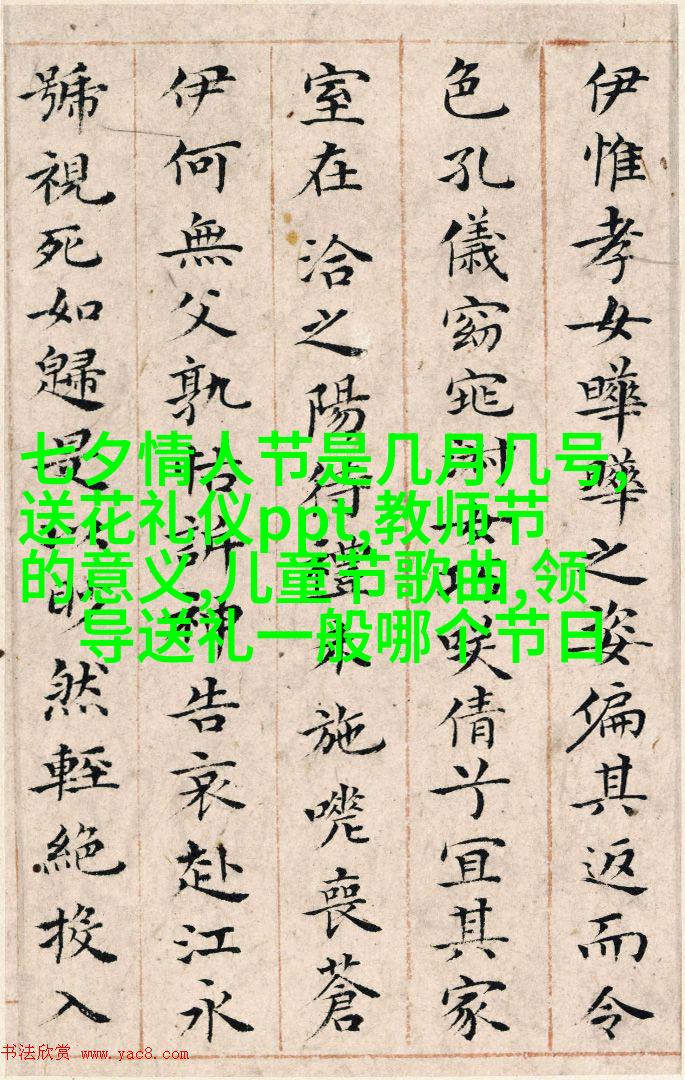 伊惟孝女曄曄之姿偏其返而令
色孔儀窈窕淑女巧咲倩兮宜其家
室在洽之陽待禮未施嗟喪蒼
伊何無父孰怙訴神告哀赴江永
號視死如歸是以眇然輕絕投入
七夕情人节是几月几号,
送花礼仪ppt,教师节
的意义,儿童节歌曲,领
导送礼一般哪个节日
书法欣赏 www.yac8.com